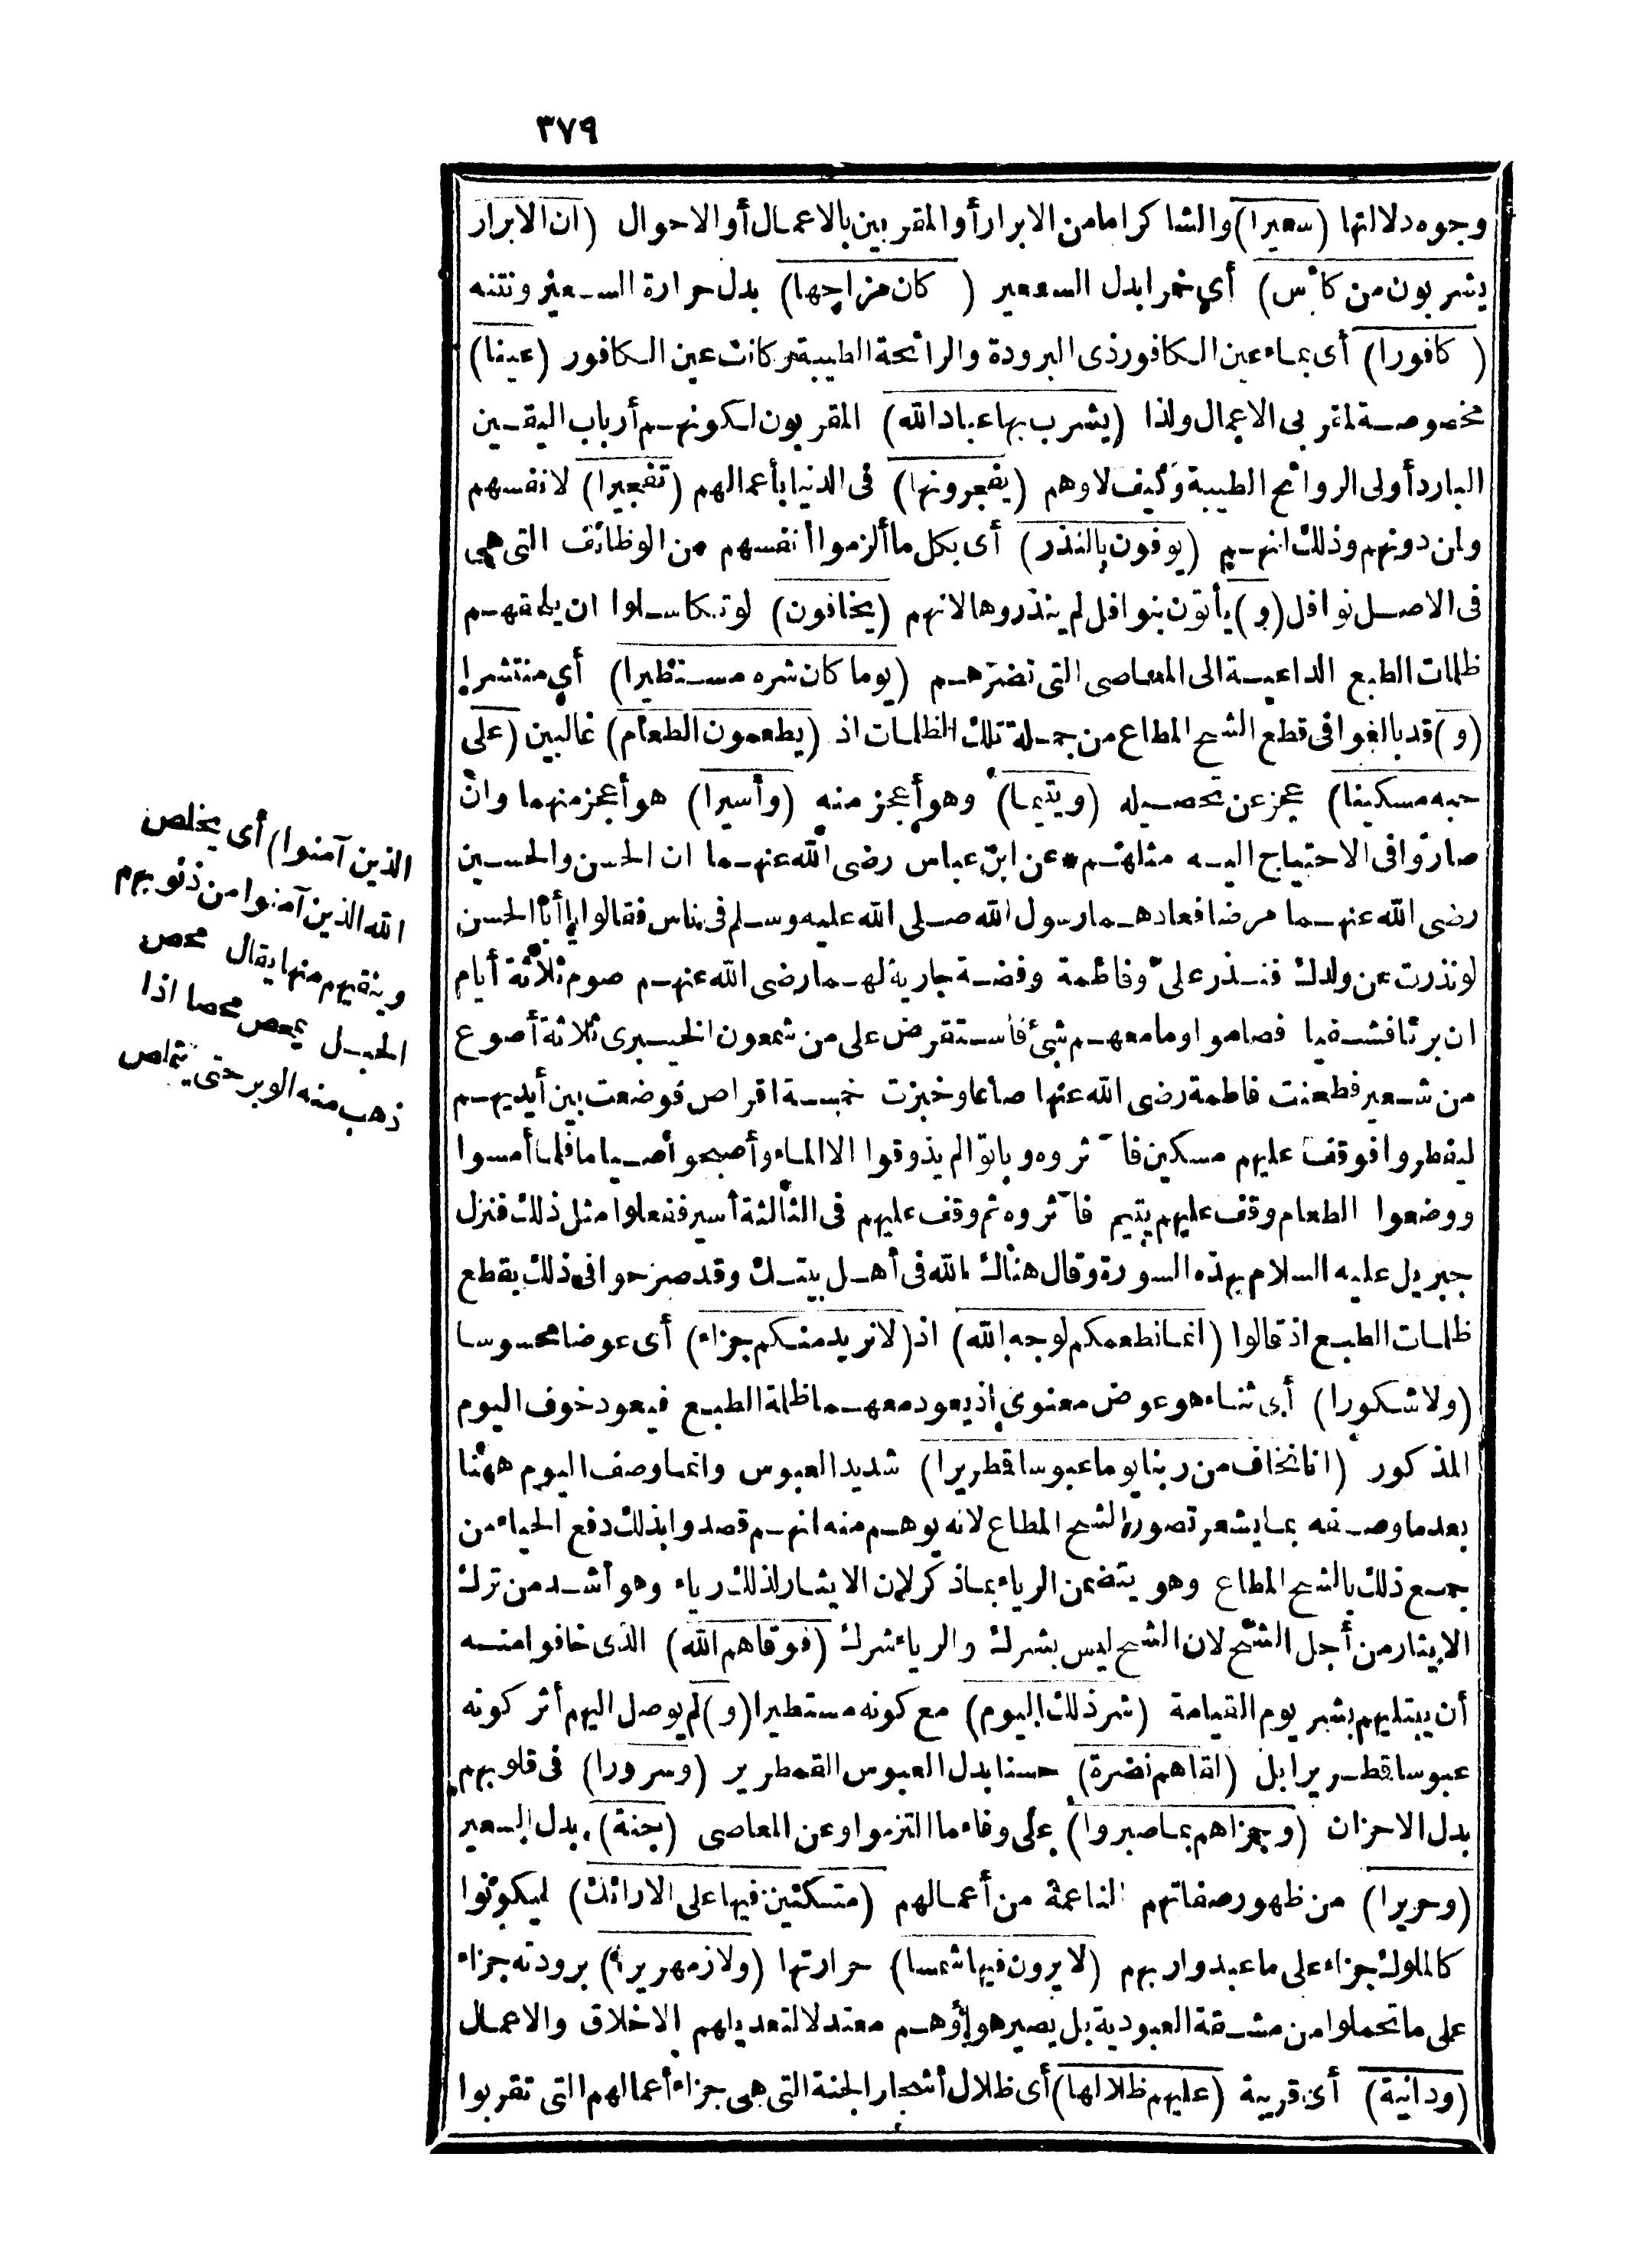 ٣٧٩
وجوه دلالتها (سعيرا) والشاكر امامن الابرار أو المقربين بالاعمال أو الاحوال (ان الابرار
يشربون من كأس) أى خمرا بدل السعير (كان مزاجها) بدل حرارة السعير ونتنه
(كافورا) أى بماء عين الكافور ذى البرودة والرائحة الطيبة كانت عين الكافور (عينا)
مخصوصة لمقربى الاعمال ولذا (يشرب بها عباد الله) المقربون لكونهم أرباب اليقين
البارد أولى الروائح الطيبة وكيف لا وهم (يفجرونها) فى الدنيا بأعمالهم (تفجيرا) لانفسهم
ولمن دونهم وذلك انهم (يوفون بالنذر) أى بكل ما ألزموا أنفسهم من الوظائف التى هى
فى الاصل نوافل (و) يأتون بنوافل لم ينذروها لانهم (يخافون) لو تكاسلوا ان يلحقهم
ظلمات الطبع الداعية الى المعاصى التى تضرهم (يوما كان شره مستطيرا) أى منتشرا
(و) قد بالغوا فى قطع الشح المطاع من جملة تلك الظلمات اذ (يطعمون الطعام) غالبين (على
حبه مسكينا) عجز عن تحصيله (ويتيما) وهو أعجز منه (وأسيرا) هو أعجز منهما وان
صاروا فى الاحتياج اليه مثلهم * عن ابن عباس رضى الله عنهما ان الحسن والحسين
رضى الله عنهما مرضا فعادهما رسول الله صلى الله عليه وسلم فى ناس فقالوا يا أبا الحسن
لو نذرت عن ولدك فنذر على وفاطمة وفضة جارية لهما رضى الله عنهم صوم ثلاثة أيام
ان برئا فشفيا فصاموا وما معهم شئ فاستقرض على من شمعون الخيبرى ثلاثة أصوع
من شعير فطحنت فاطمة رضى الله عنها صاعا وخبزت خمسة اقراص فوضعت بين أيديهم
ليفطروا فوقف عليهم مسكين فآثروه وباتوا لم يذوقوا الا الماء وأصبحوا صياما فلما أمسوا
ووضعوا الطعام وقف عليهم يتيم فآثروه ثم وقف عليهم فى الثالثة أسير ففعلوا مثل ذلك فنزل
جبريل عليه السلام بهذه السورة وقال هناك الله فى أهل بيتك وقد صرحوا فى ذلك بقطع
ظلمات الطبع اذ قالوا (انما نطعمكم لوجه الله) اذ (لا نريد منكم جزاء) أى عوضا محسوسا
(ولا شكورا) أى ثناء هو عوض معنوى اذ يعود معهما ظلمة الطبع فيعود خوف اليوم
المذكور (انا نخاف من ربنا يوما عبوسا قمطريرا) شديد العبوس وانما وصف اليوم ههنا
بعد ما وصفه بما يشعر تصور الشح المطاع لانه يوهم منه انهم قصدوا بذلك دفع الحياء من
جمع ذلك بالشح المطاع وهو يتضمن الرياء بما ذكر لان الايثار لذلك رياء وهو أشد من ترك
الايثار من أجل الشح لان الشح ليس بشرك والرياء شرك (فوقاهم الله) الذى خافوا منه
أن يبتليهم بشر يوم القيامة (شر ذلك اليوم) مع كونه مستطيرا (و) لم يوصل اليهم أثر كونه
عبوسا قمطريرا بل (لقاهم نضرة) حسنا بدل العبوس القمطرير (وسرورا) فى قلوبهم
بدل الاحزان (وجزاهم بما صبروا) على وفاء ما التزموا وعن المعاصى (جنة) بدل السعير
(وحريرا) من ظهور صفاتهم الناعمة من أعمالهم (متكئين فيها على الارائك) ليكونوا
كالملوك جزاء على ما عبدوا ربهم (لا يرون فيها شمسا) حرارتها (ولا زمهريرا) برودته جزاء
على ما تحملوا من مشقة العبودية بل يصير هواؤهم معتدلا لتعديلهم الاخلاق والاعمال
(ودانية) أى قريبة (عليهم ظلالها) أى ظلال أشجار الجنة التى هى جزاء أعمالهم التى تقربوا
الذين آمنوا) أى يخلص
الله الذين آمنوا من ذنوبهم
وينقيهم منها يقال محص
الحبل يمحص محصا اذا
ذهب منه الوبر حتى يتملص